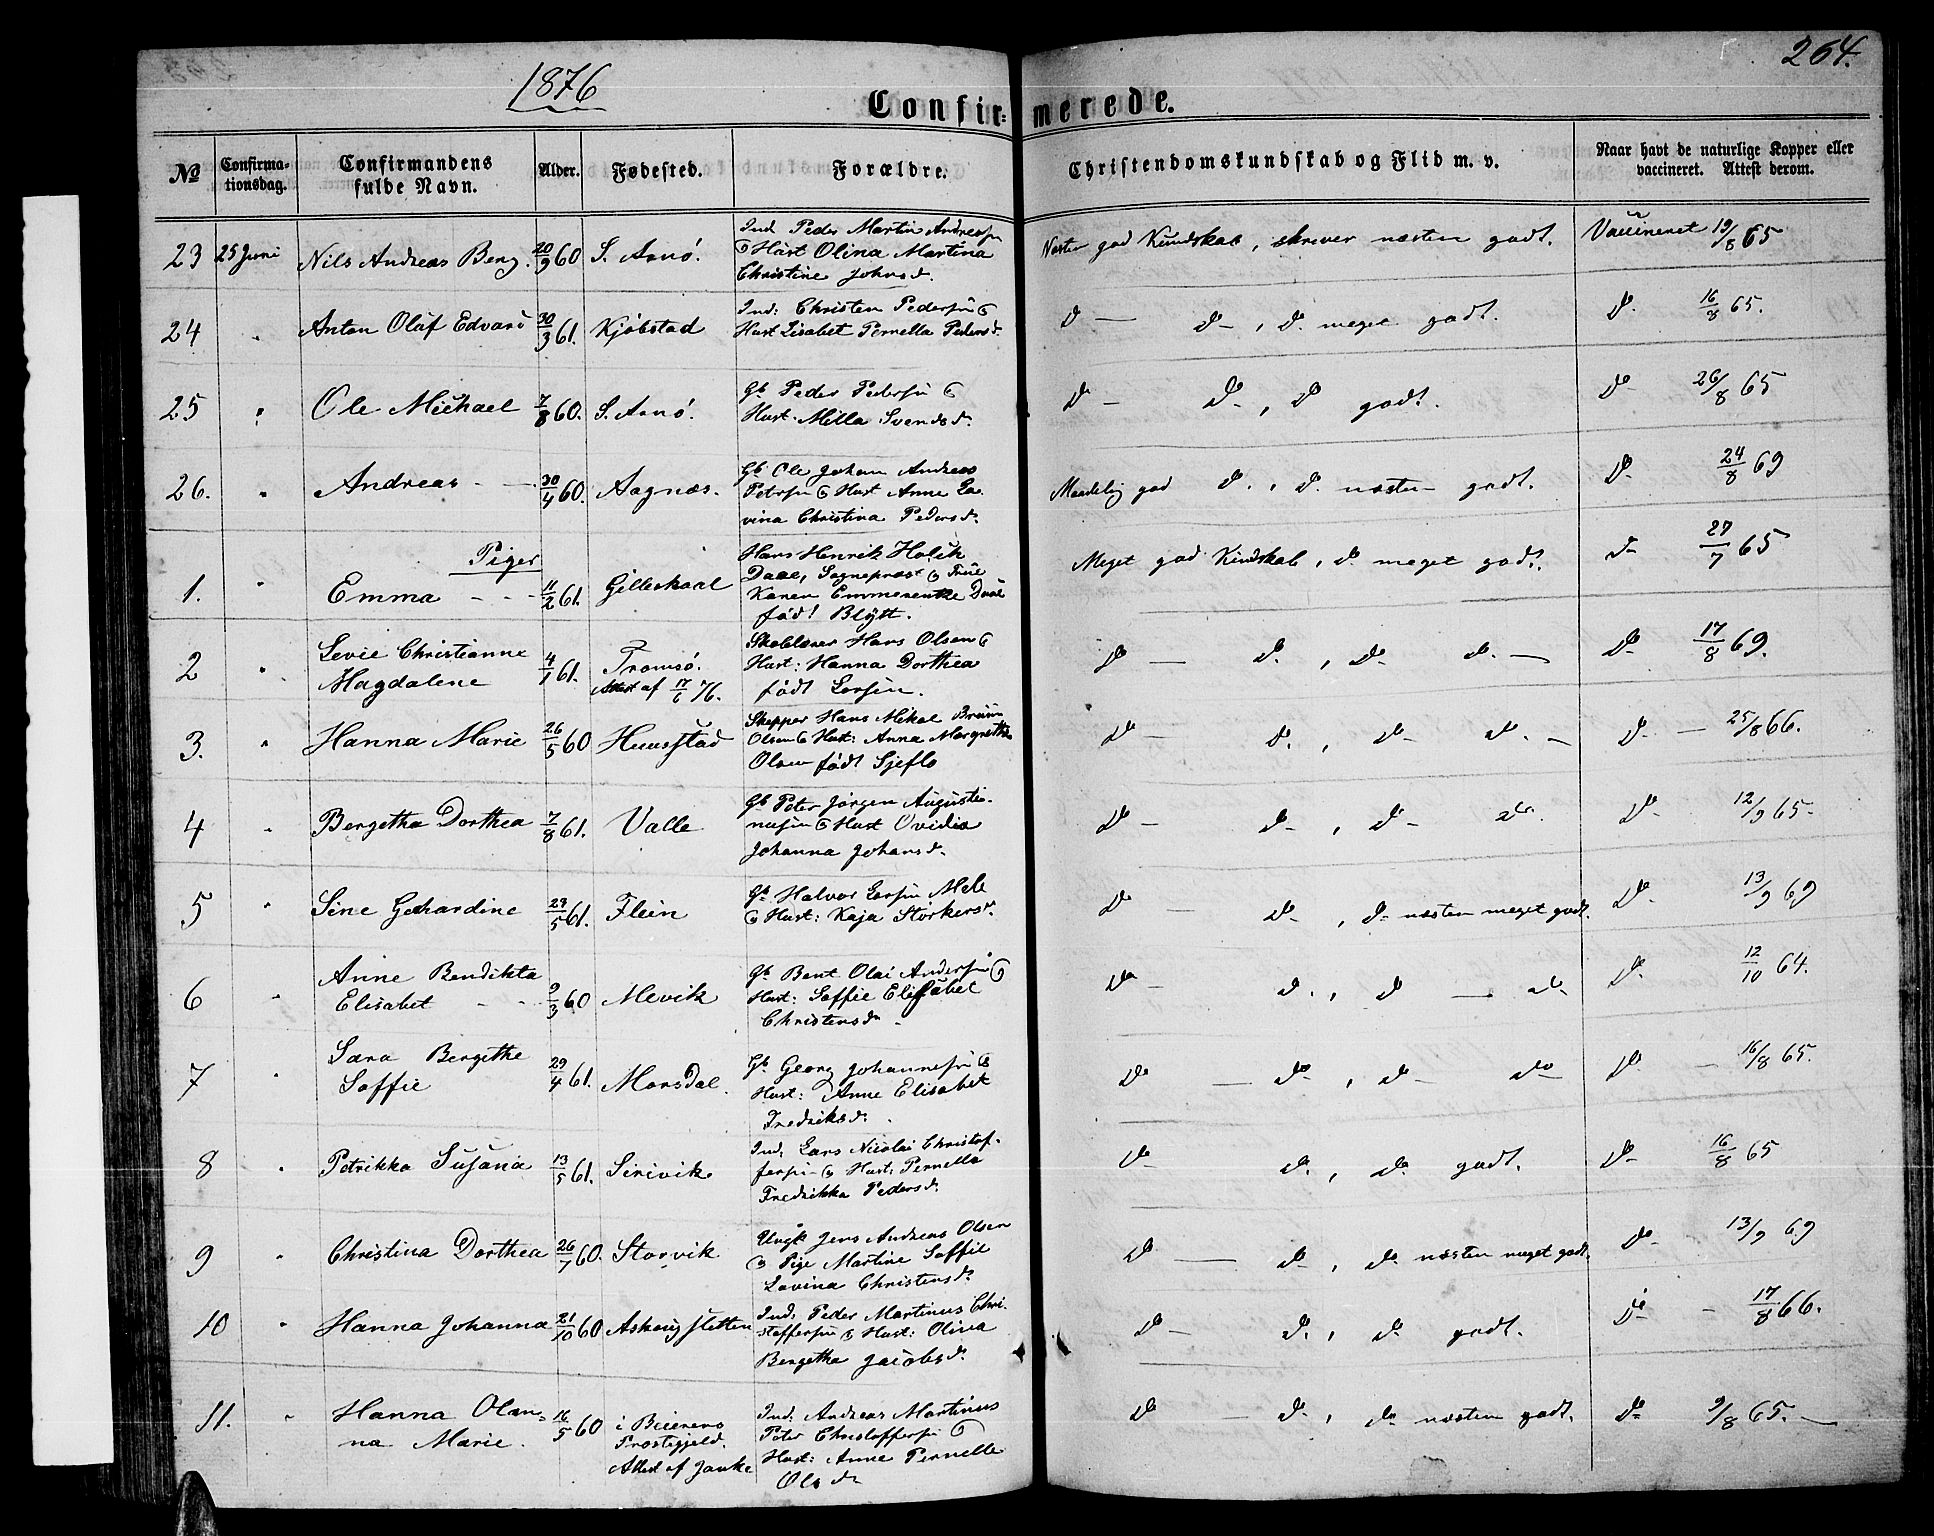 1876
264.
Confir=merede.
№
Confirma-
tionsdag.
Confirmandens
fulde Navn.
Alder.
Fødested.
Forældre.
Christendomskundskab og Flid m. v.
Naar havt de naturlige Kopper eller
vaccineret. Attest derom.
23 25 Juni Nils Andreas Berg. 20/9 60 S. Arnö.
Ind Peder Martin Andreasen
& Hust Olina Martina
Christine Johnsd.
Næsten god Kundskab, skriver næsten godt. Vaccineret 19/8 65
24 " Anton Olaf Edvard 30/3 61. Kjöbstad
Ind: Christen Pedersen &
Hust Lisabet Pernella Pedersd.
do — do, do meget godt. do 16/8 65.
25 " Ole Michael 7/8 60. S. Arnö.
Gb Peder Pedersen &
Hust. Milla Svendsd.
do — do, do godt. do 26/8 65
26. " Andreas - - 30/4 60. Aagnæs.
Gb. Ole Johan Andreas
Petersen & Hust Anne La-
vina Christina Pedersd.
Maadelig god do, do næsten godt. do 24/8 69
Piger
1. " Emma - - - 11/2 61. Gilleskaal
Hans Henrik Holck
Daae, Sognepræst & Frue
Karen Emmerentze Daae
född Blytt.
Meget god Kundskab, do meget godt. do 27/7 65
2 " Sevie Christianne
Magdalene 4/1 61. Tromsö.
Attest af 17/6 76.
Skolelærer Hans Olsen &
Hust: Hanna Dorthea
födt Larsen.
do — do, do do — do 17/8 69.
3. " Hanna Marie 26/5 60 Huusstad
Skepper Hans Mikal Bruun
Olsen & Hust: Anna Margrethe
Olsen födt Sjeflo
do — do, do do — do — 25/8 66.
4 " Bergetha Dorthea 7/8 61. Valle
Gb Peter Jörgen Augusti-
nusen & Hust Ovidia
Johanna Johansd.
do — do, do — do. do 12/9 65.
5 " Sine Gerhardine 27/5 61. Flein
Gb. Halvor Larsen Mele
& Hust: Kaja Störkersd.
do — do, do næsten meget godt. do 13/9 69
6 " Anne Bendikta
Elisabet - - 9/3 60 Mevik
Gb Bent Olai Andersen &
Hust: Soffie Elisabet
Christensd.
do — do, do — do do 12/10 64.
7 " Sara Bergethe
Soffie 29/4 61. Morsdal.
Gb. Georg Johannesen &
Hust: Anne Elisabet
Fredriksd.
do — do, do — do do — 16/8 65.
8 " Petrikka Susana 13/5 61. Sirivik
Ind: Lars Nicolai Christof-
fersen & Hust: Pernella
Fredrikka Pedersd.
do do, do godt. do 16/8 65
9 " Christina Dorthea 26/7 60. Storvik
Ungk Jens Andreas Olsen
& Pige Martine Soffie
Lovina Christensd.
do — do, do næsten meget godt. do 13/9 69
10 " Hanna Johanna 21/10 60 Askougsletten
Ind: Peder Martinus Chri-
stoffersen & Hust: Olina
Bergetha Jacobsd.
do — do, do godt. do — 17/8 66.
11. " Hanna Olan=
na Marie. 16/5 60 i Beierens
Præstegjeld.
Attest af
Ind: Andreas Martinus
Peter Christoffersen &
Hust: Anne Pernelle
Olsd.
do — do, do næsten godt. do 9/8 65. —